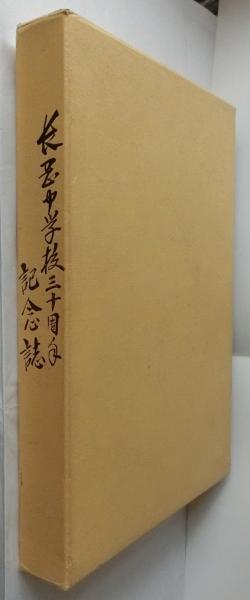 長岡中学校三十周年
記念誌